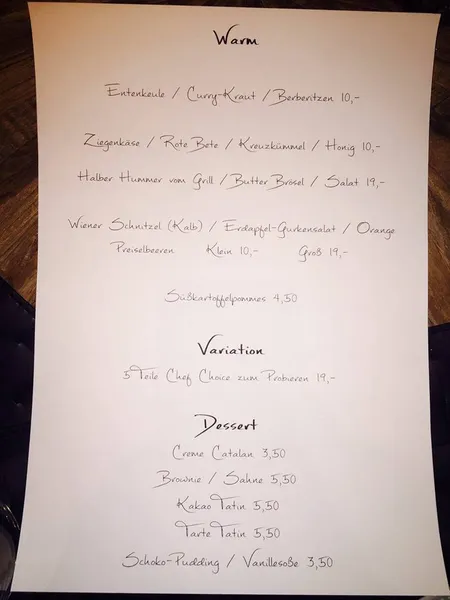 Warm
Entenkeule / Curry-Kraut / Berberitzen 10,-
Ziegenkäse / Rote Bete / Kreuzkümmel / Honig 10,-
Halber Hummer vom Grill / Butter Brösel / Salat 19,-
Wiener Schnitzel (Kalb) / Erdapfel-Gurkensalat / Orange
Preiselbeeren Klein 10,- Groß 19,-
Süßkartoffelpommes 4,50
Variation
5 Teile Chef Choice zum Probieren 19,-
Dessert
Creme Catalan 3,50
Brownie / Sahne 5,50
Kakao Tatin 5,50
Tarte Tatin 5,50
Schoko-Pudding / Vanillesoße 3,50